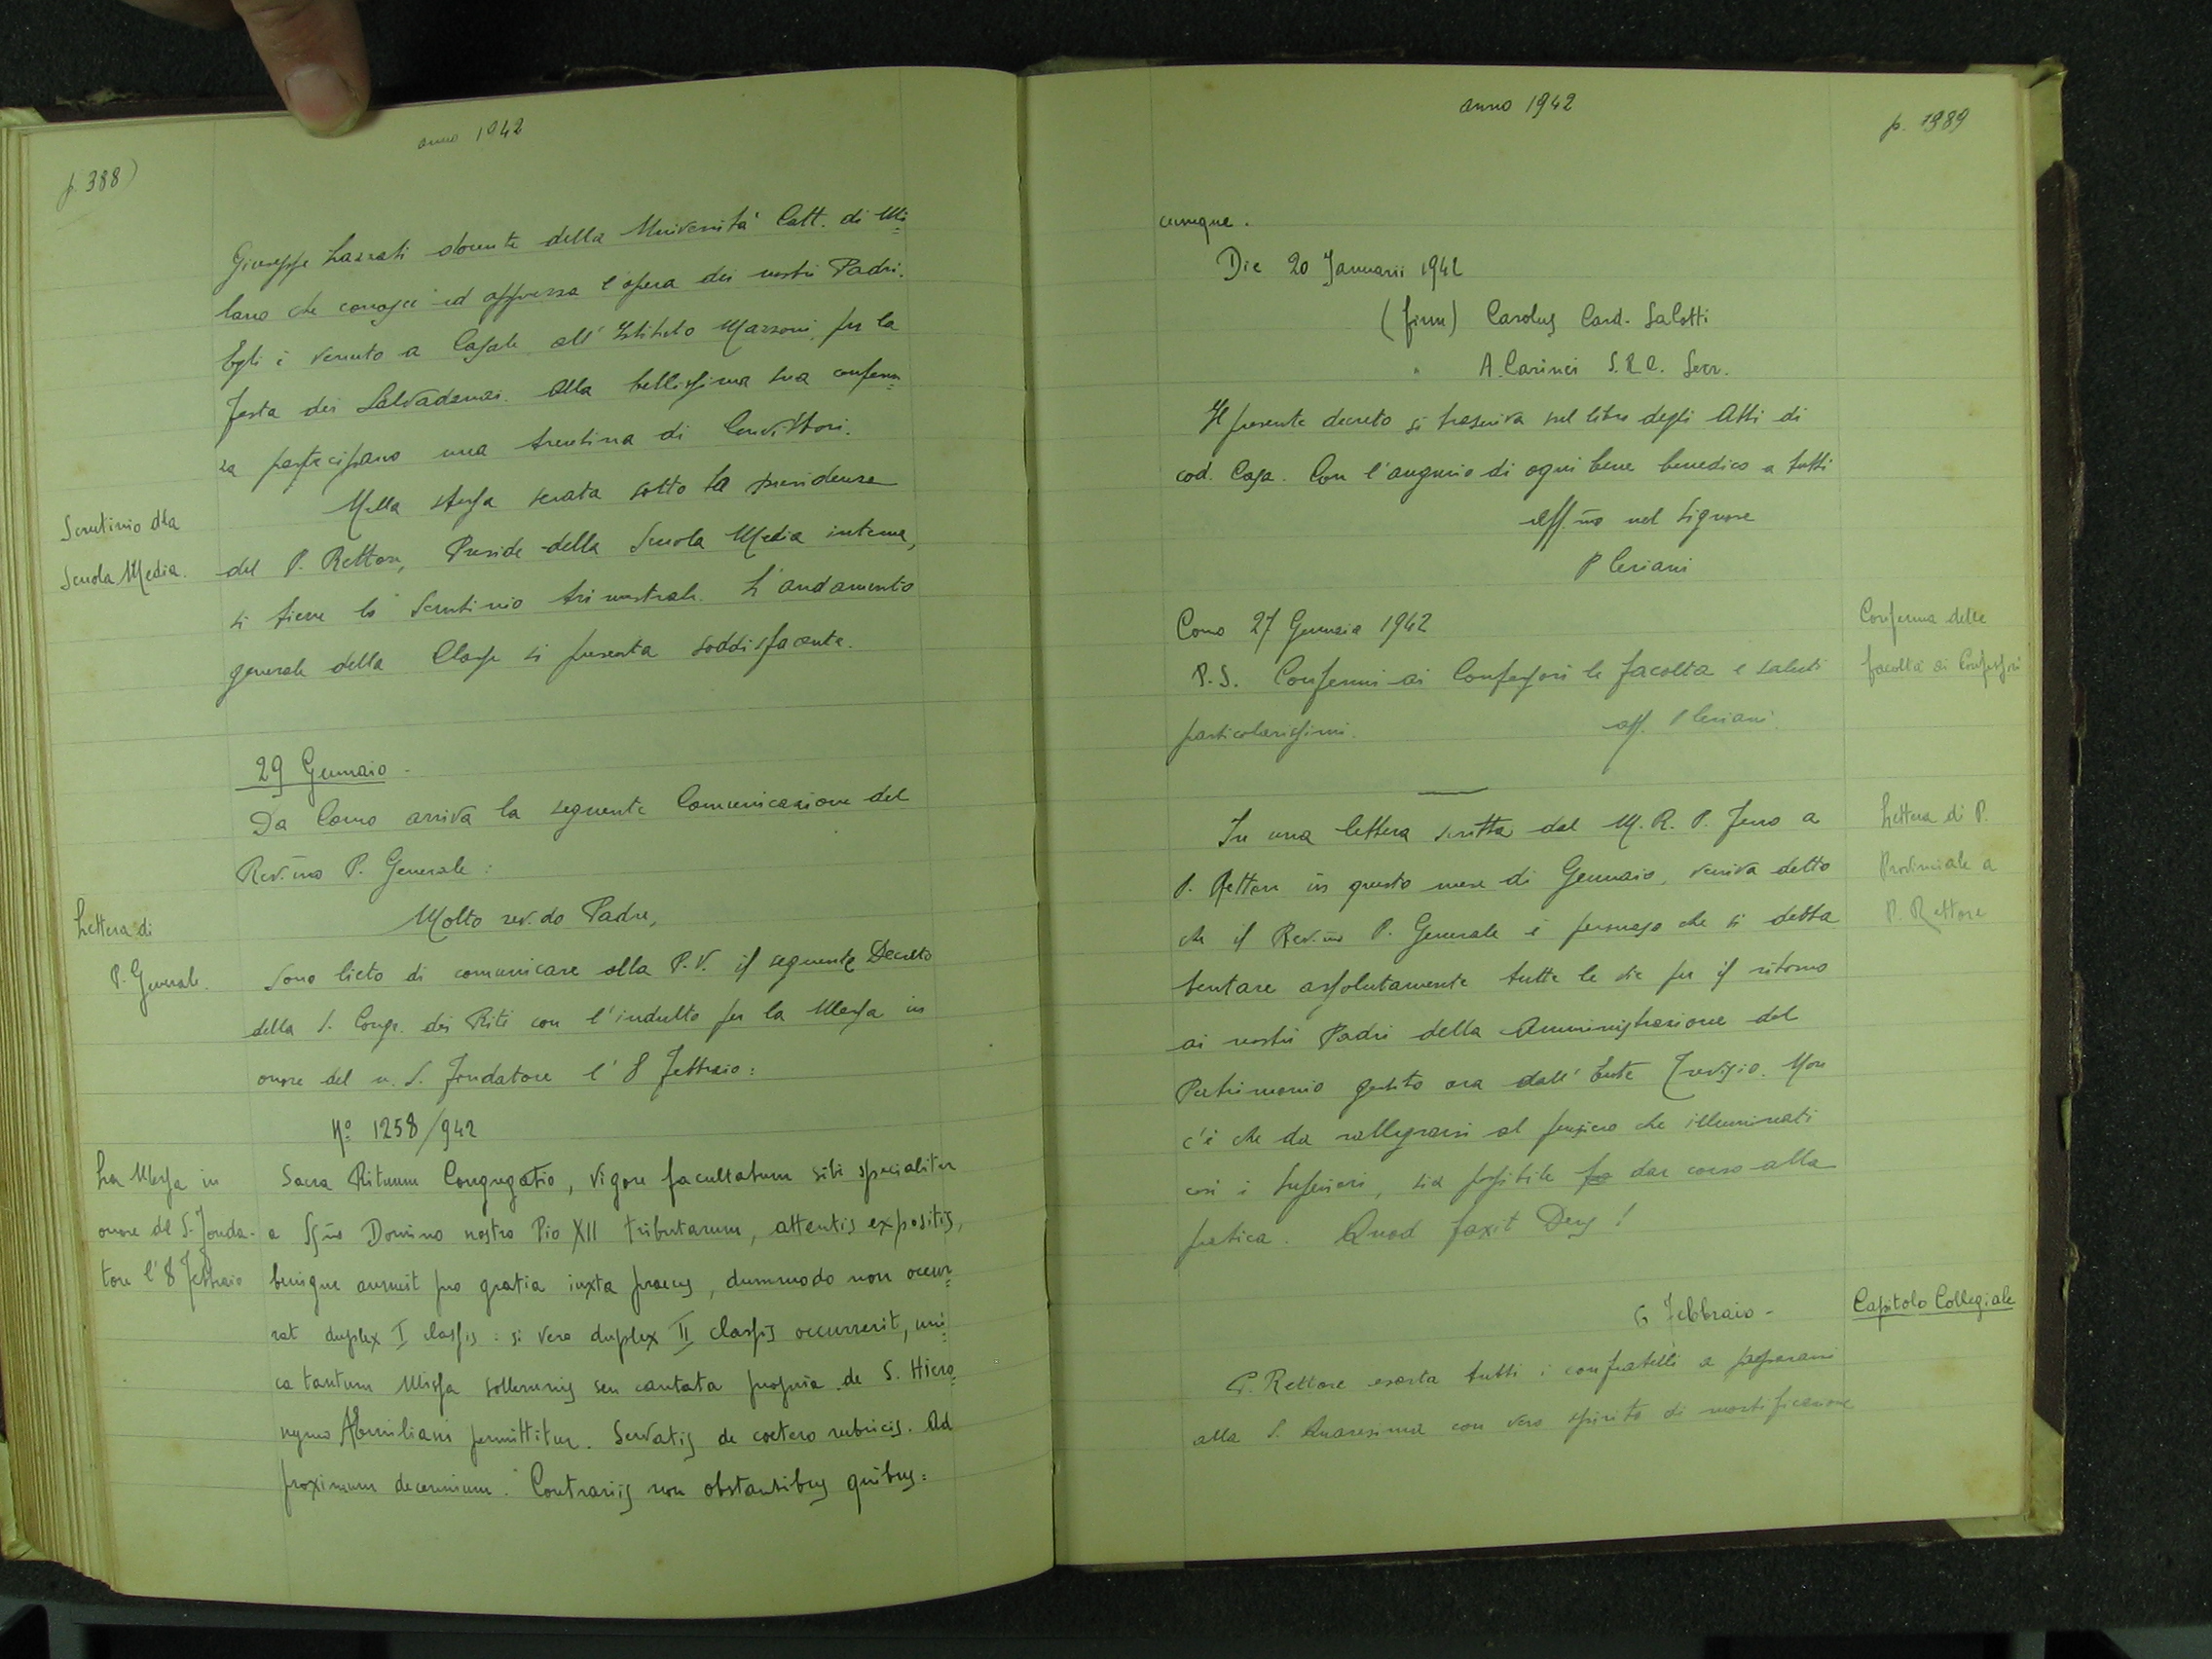 anno 1942
p. 388)
Giuseppe Lazzati docente della Università Catt. di Mi=
lano che conosce ed apprezza l'opera dei nostri Padri.
Egli è venuto a Casale all'Istituto Mazzoni per la
festa dei Salvadanai. Alla bellissima sua conferen=
za partecipano una trentina di Convittori.
Scrutinio dla
Scuola Media.
Nella stessa serata sotto la presidenza
del P. Rettore, Preside della Scuola Media interna,
si tiene lo Scrutinio trimestrale. L'andamento
generale della Classe si presenta soddisfacente.
29 Gennaio -
Da Como arriva la seguente Comunicazione del
Rev.mo P. Generale :
Lettera di
P. Generale.
Molto rev.do Padre,
Sono lieto di comunicare alla P.V. il seguente Decreto
della S. Congr. dei Riti con l'indulto per la Messa in
onore del n. S. Fondatore l'8 Febbraio :
Nº 1258/942
La Messa in
onore del S. Fonda-
tore l'8 Febbraio
Sacra Rituum Congregatio, vigore facultatum sibi specialiter
a SSmo Domino nostro Pio XII tributarum, attentis expositis,
benigne annuit pro gratia iuxta preces, dummodo non occur=
rat duplex I classis : si vero duplex II classis occurrerit, uni=
ca tantum Missa sollemnis seu cantata propria de S. Hiero=
nymo Aemiliani permittitur. Servatis de coetero rubricis. Ad
proximum decennium. Contrariis non obstantibus quibus=
anno 1942
p. 1389
cumque.
Die 20 Januarii 1942
(firm) Carolus Card. Salotti
" A. Carinci S.R.C. Secr.
Il presente decreto si trascriva nel libro degli Atti di
cod. Casa. Con l'augurio di ogni bene benedico a tutti
aff.mo nel Signore
P Ceriani
Como 27 Gennaio 1942
Conferma delle
facoltà ai Confessori
P.S. Confermi ai Confessori le facoltà e saluti
particolarissimi. aff. P Ceriani.
Lettera di P.
Provinciale a
P. Rettore
In una lettera scritta dal M. R. P. Ferro a
P. Rettore in questo mese di Gennaio, veniva detto
che il Rev.mo P. Generale è persuaso che si debba
tentare assolutamente tutte le vie per il ritorno
ai nostri Padri della Amministrazione del
Patrimonio gestito ora dall'Ente Trevisio. Non
c'è che da rallegrarsi al pensiero che illuminati
così i Superiori, sia possibile dar corso alla
pratica. Quod faxit Deus !
6 Febbraio -
Capitolo Collegiale
P. Rettore esorta tutti i confratelli a prepararsi
alla S. Quaresima con vero spirito di mortificazione